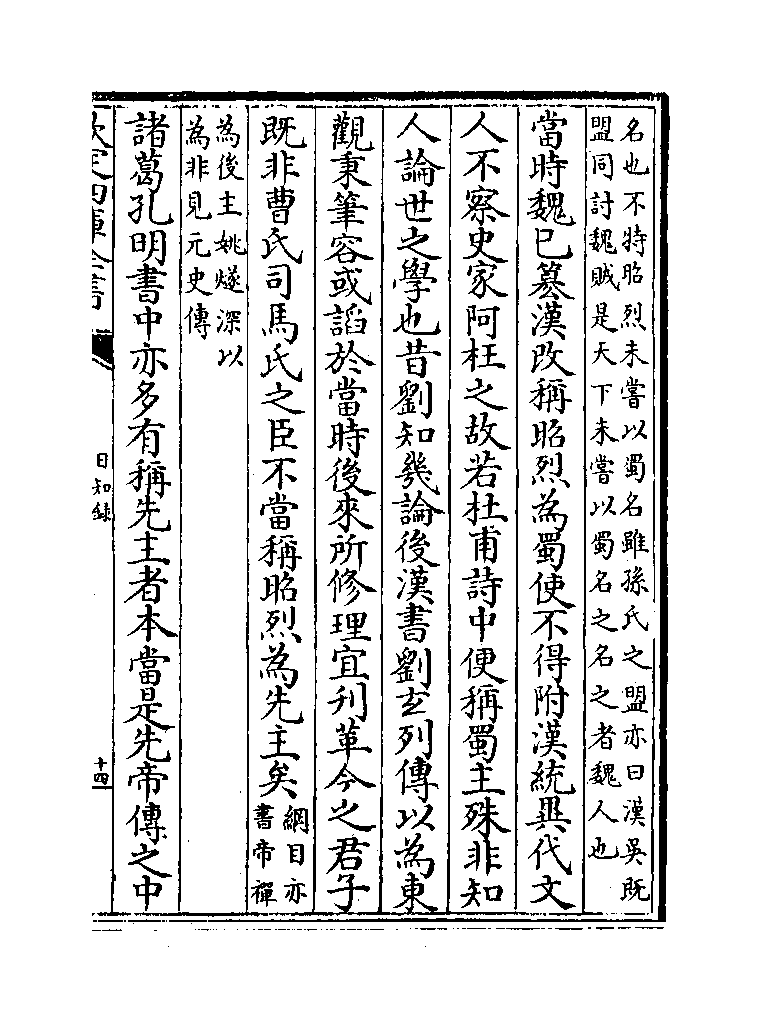 名也不特昭烈未嘗以蜀名雖孫氏之盟亦曰漢吳既
盟同討魏賊是天下未嘗以蜀名之名之者魏人也
當時魏已篡漢改稱昭烈為蜀使不得附漢統異代文
人不察史家阿枉之故若杜甫詩中便稱蜀主殊非知
人論世之學也昔劉知幾論後漢書劉玄列傳以為東
觀秉筆容或謟於當時後來所修理宜刋革今之君子
既非曹氏司馬氏之臣不當稱昭烈為先主矣
綱目亦
書帝禪
為後主姚燧深以
為非見元史傳
諸葛孔明書中亦多有稱先主者本當是先帝傳之中
欽定四庫全書
日知録
十四